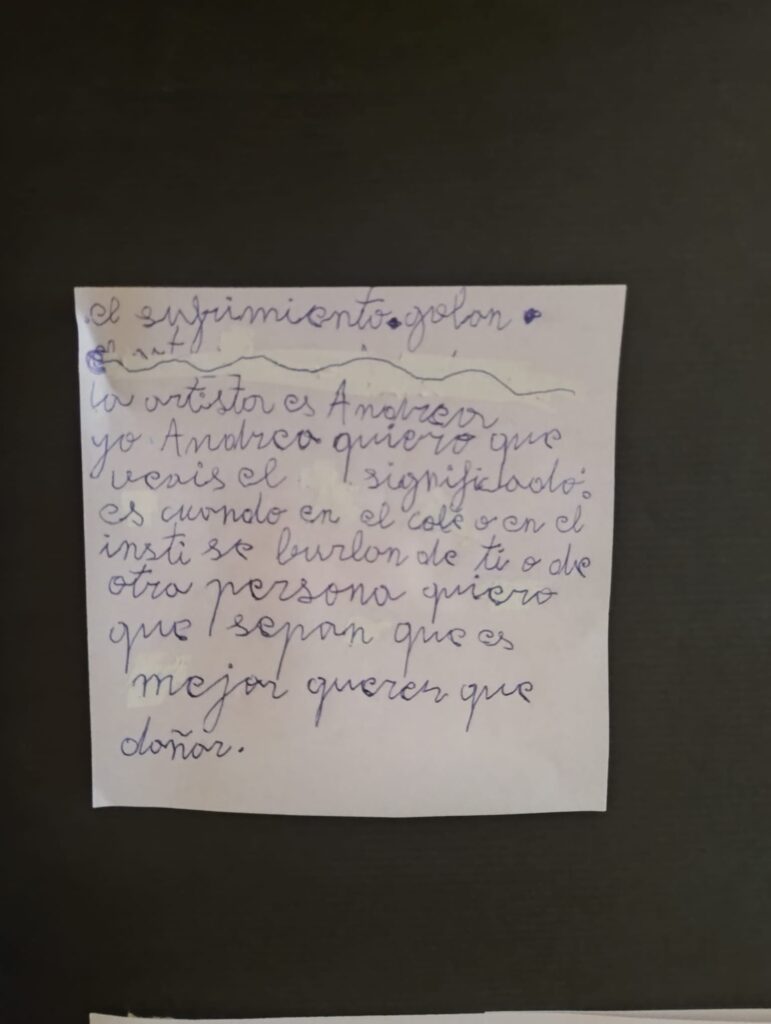 el sufrimiento. golan.
la artista es Andrea
yo Andrea quiero que
veais el significado:
es cuando en el cole o en el
insti se burlan de ti o de
otra persona quiero
que sepan que es
mejor querer que
dañar.